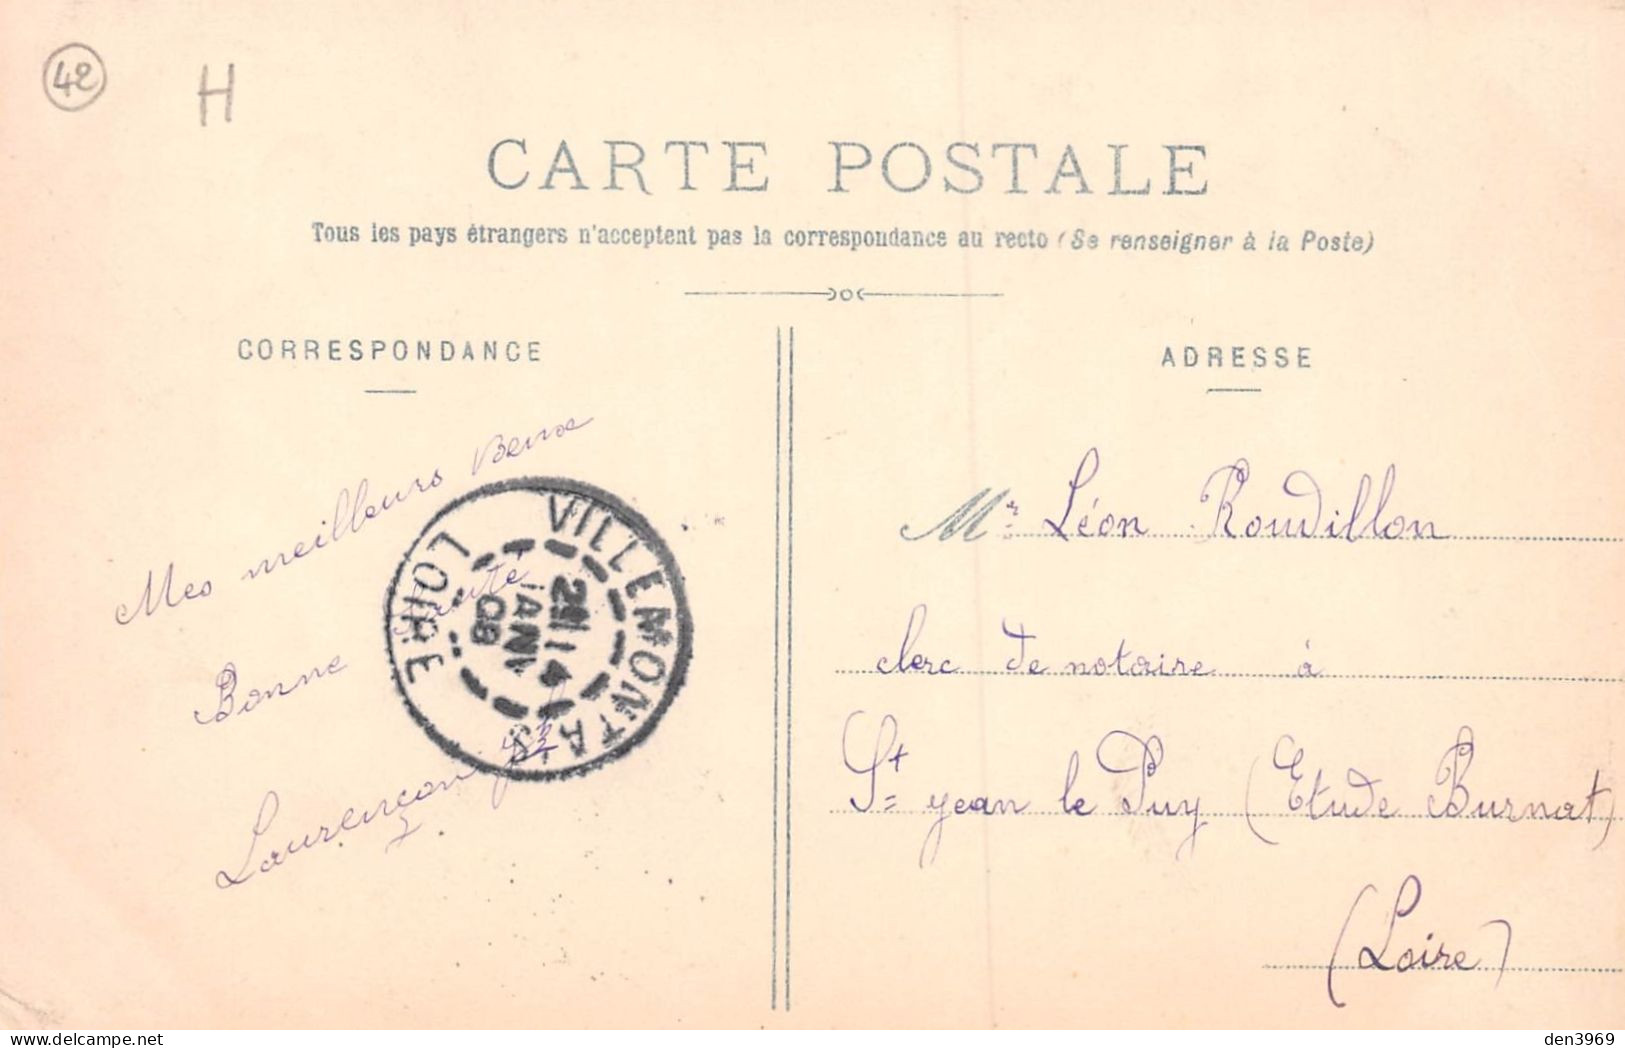 42
H
CARTE POSTALE
Tous les pays étrangers n'acceptent pas la correspondance au recto (Se renseigner à la Poste)
CORRESPONDANCE
Mes meilleurs
Bonne Santé
Laurençon
VILLEMONTAIS
LOIRE
JANV
08
ADRESSE
Mr Léon Roudillon
clerc de notaire à
St Jean le Puy (Etude Burnat)
(Loire)
den3969